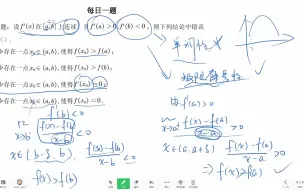 每日一题
题：设 f'(x) 在 [a,b] 上连续，且 f'(a) > 0, f'(b) < 0，则下列结论中错误
少存在一点 x₀ ∈ (a,b)，使得 f(x₀) > f(a)；
少存在一点 x₀ ∈ (a,b)，使得 f(x₀) > f(b)；
少存在一点 x₀ ∈ (a,b)，使得 f'(x₀) = 0；
少存在一点 x₀ ∈ (a,b)，使得 f(x₀) = 0.
f'(b) < 0
lim x→b⁻ f(x)-f(b) / x-b < 0
x ∈ (b-δ, b)
f(x)-f(b) / x-b < 0
f(x) > f(b)
由 f'(a) > 0
lim x→a⁺ f(x)-f(a) / x-a > 0
x ∈ (a, a+δ) f(x)-f(a) / x-a > 0
⇒ f(x) > f(a)